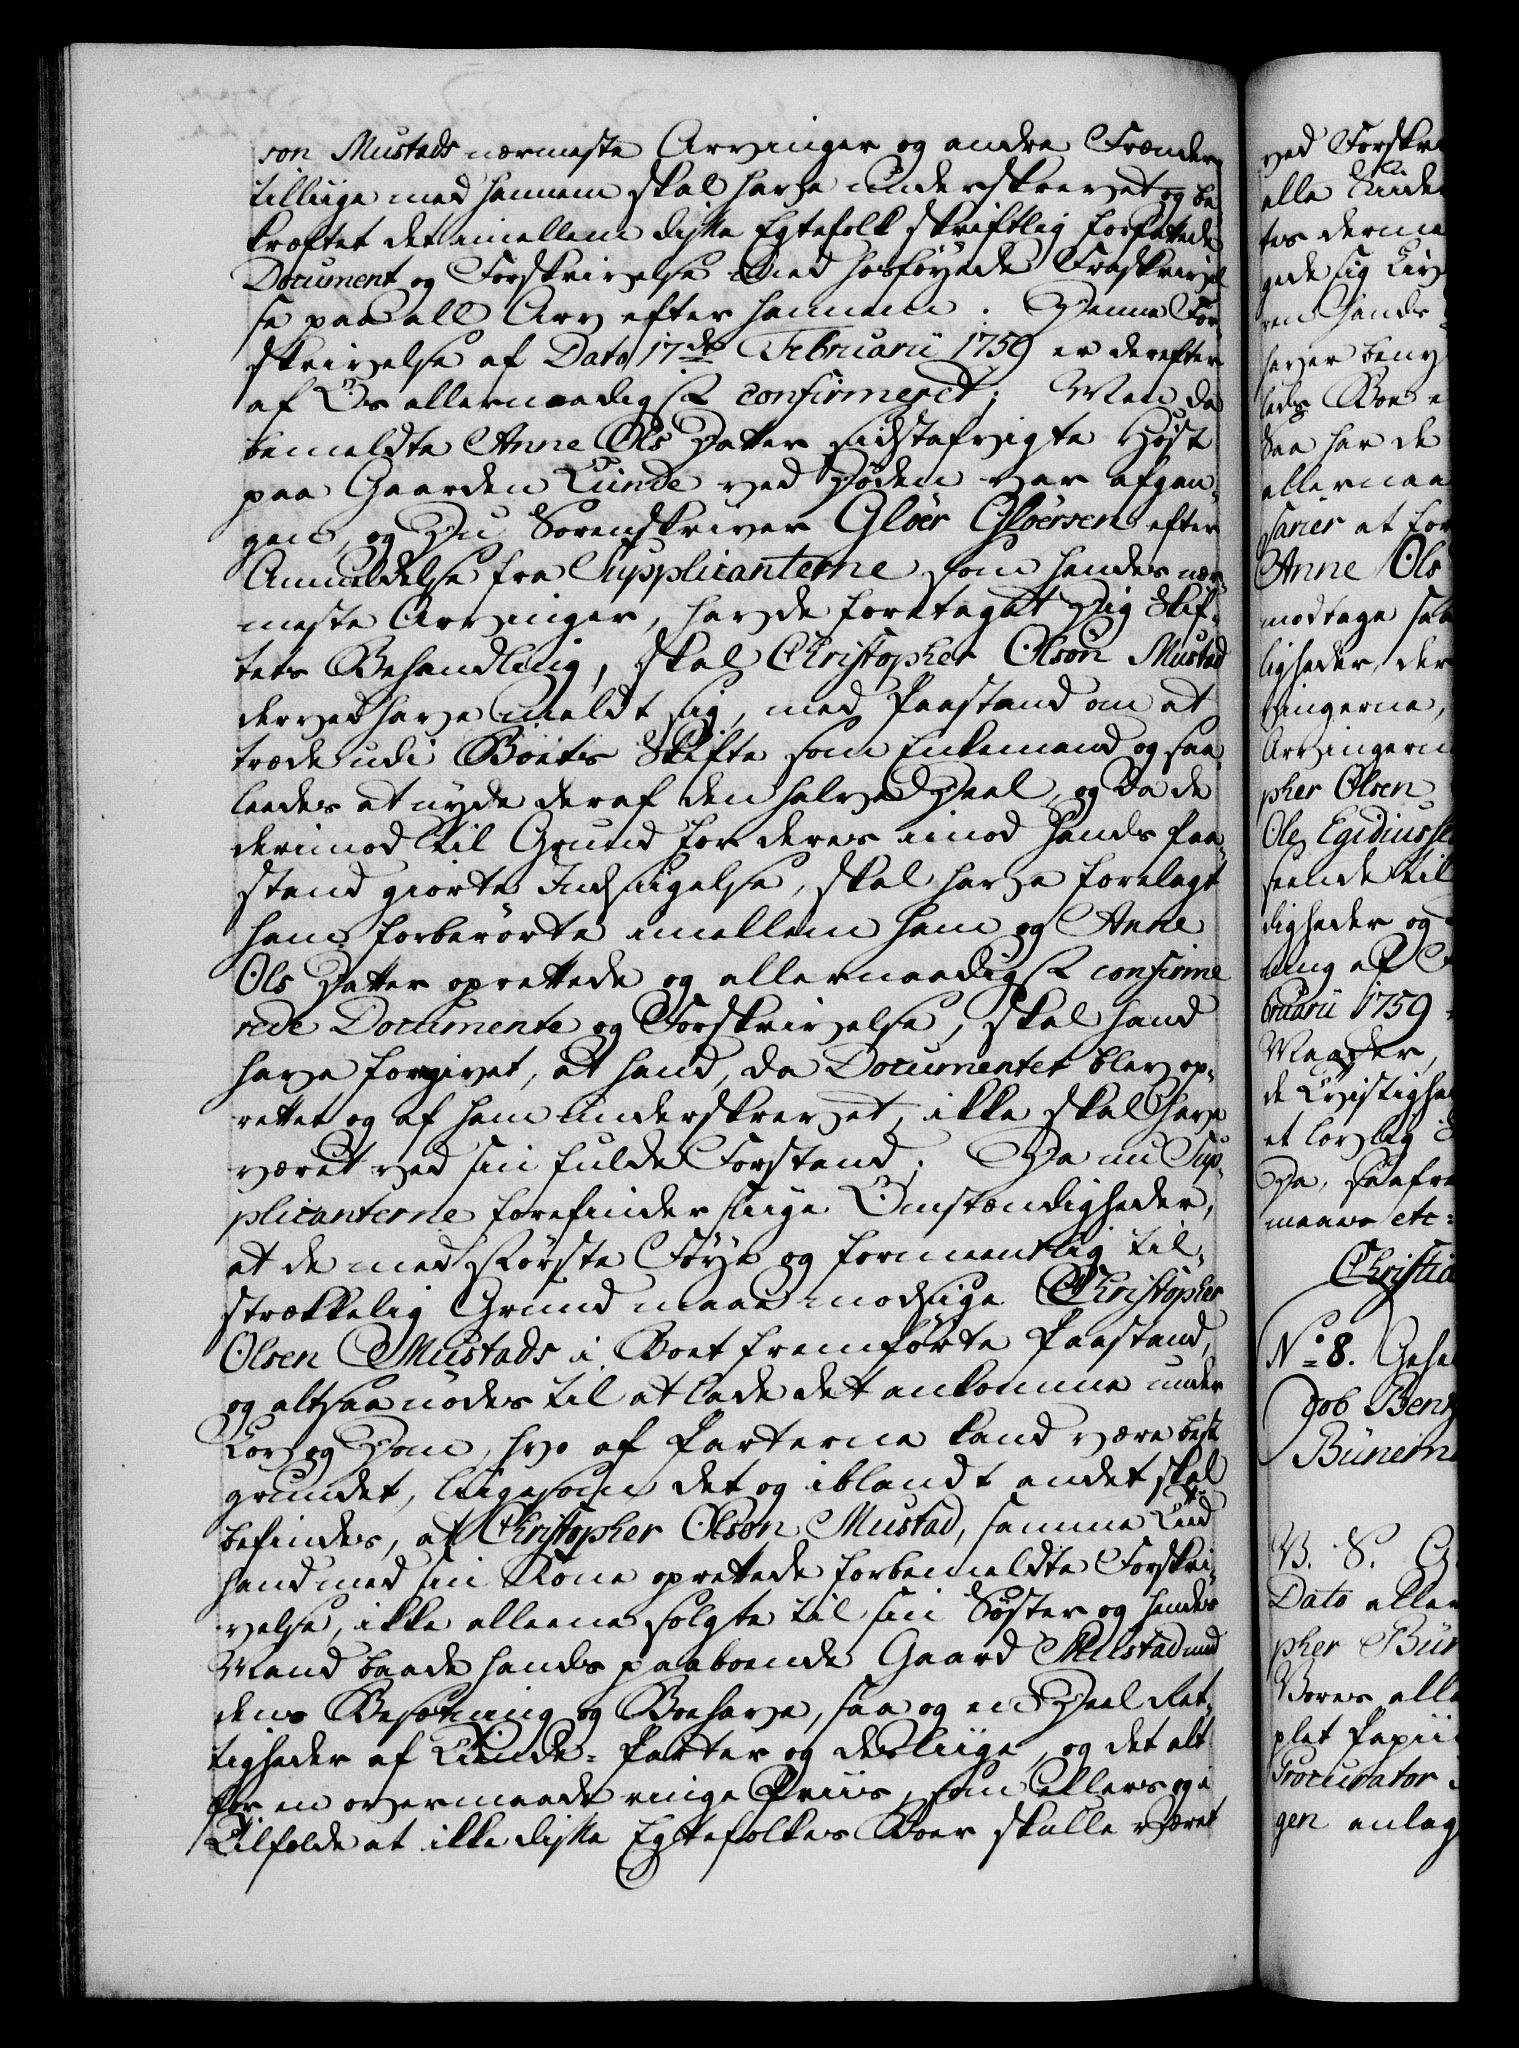 son Mustads nærmeste Arvinger og andre Frænder
tilliige med hannem skal have underskrevet og be
kræftet det imellem disse Egtefolk skriftlig forfattede
Document og Forskrivelse med hosføyede Fraskrivel
se paa all Arv efter hannem. Denne For¬
skrivelse af Dato 17de Februarii 1759 er derefter
af Os allernaadigst confirmeret; Men da
bemeldte Anne Ols Datter sidstafvigte Høst
paa Gaarden Lunde ved Døden var afgan¬
gen, og Du Sorenskriver Gløer Gløersen efter
Anmeldelse fra Supplicanterne som hendes nær¬
meste Arvinger, havde foretaget Dig Skif¬
tets Behandling, skal Christopher Olson Mustad
derved have meldt sig, med Paastand om at
træde udi Boets Skifte som Enkemand og saa
leedes at nyde deraf den halve Deel, og da de
derimod til Grund for deres imod hands Paa¬
stand giorte Indsigelse, skal have forelagt
ham forberørte imellem ham og Anne
Ols Datter oprettede og allernaadigst confirme
rede Documente og Forskrivelse, skal hand
have foregivet, at hand, da Documentet blev op¬
rettet og af ham underskrevet, ikke skal have
været ved sin fulde Forstand. Da nu Sup¬
plicanterne forefinder sliige Omstændigheder,
at de med største Føye og formeentlig til¬
strækkelig Grund maae modsige Christopher
Olsen Mustads i Boet fremførte Paastand,
og altsaa nødes til at lade det ankomme under
Lov og Dom, hvo af Parterne kand være best
grundet, liigesom det og iblandt andet skal
befindes, at Christopher Olson Mustad, samme Tiid
hand med sin Kone oprettede forbemeldte Forskri¬
velse, ikke alleene solgte til sin Søster og hendes
Mand baade hands paaboende Gaard Mustad med
dens Besætning og Boehave, saa og en Deel Ret¬
tigheder af Tiende-Parter og desliige, og det alt
for en overmaade ringe Priis, som ellers og i
Tilfælde at ikke disse Egtefolkes Boer skulle været
ved Forskri
alle
tes derme
gede sig
ren Hands
haver beny
leds Boe e
Saa har de
allernaa
sarier at for
Anne Ols
modtage saa
ligheder, der
vingerne,
Arvingern
pher Olsen
Ole Egidiusse
seende til
digheder og
ning af
bruarii 1759
Maader,
de Tvistighe
et lovlig
Da, saafre
maae etc:
Christia
No 8.
Job Bentz
Bünem
V. S. G
Dato aller
pher Bür
Vores alle
plet Papii
Procurator
gen anlag